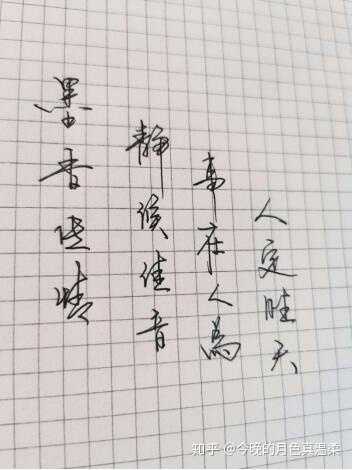 人定胜天
事在人為
静候佳音
墨香
知乎 @今晚的月色真温柔